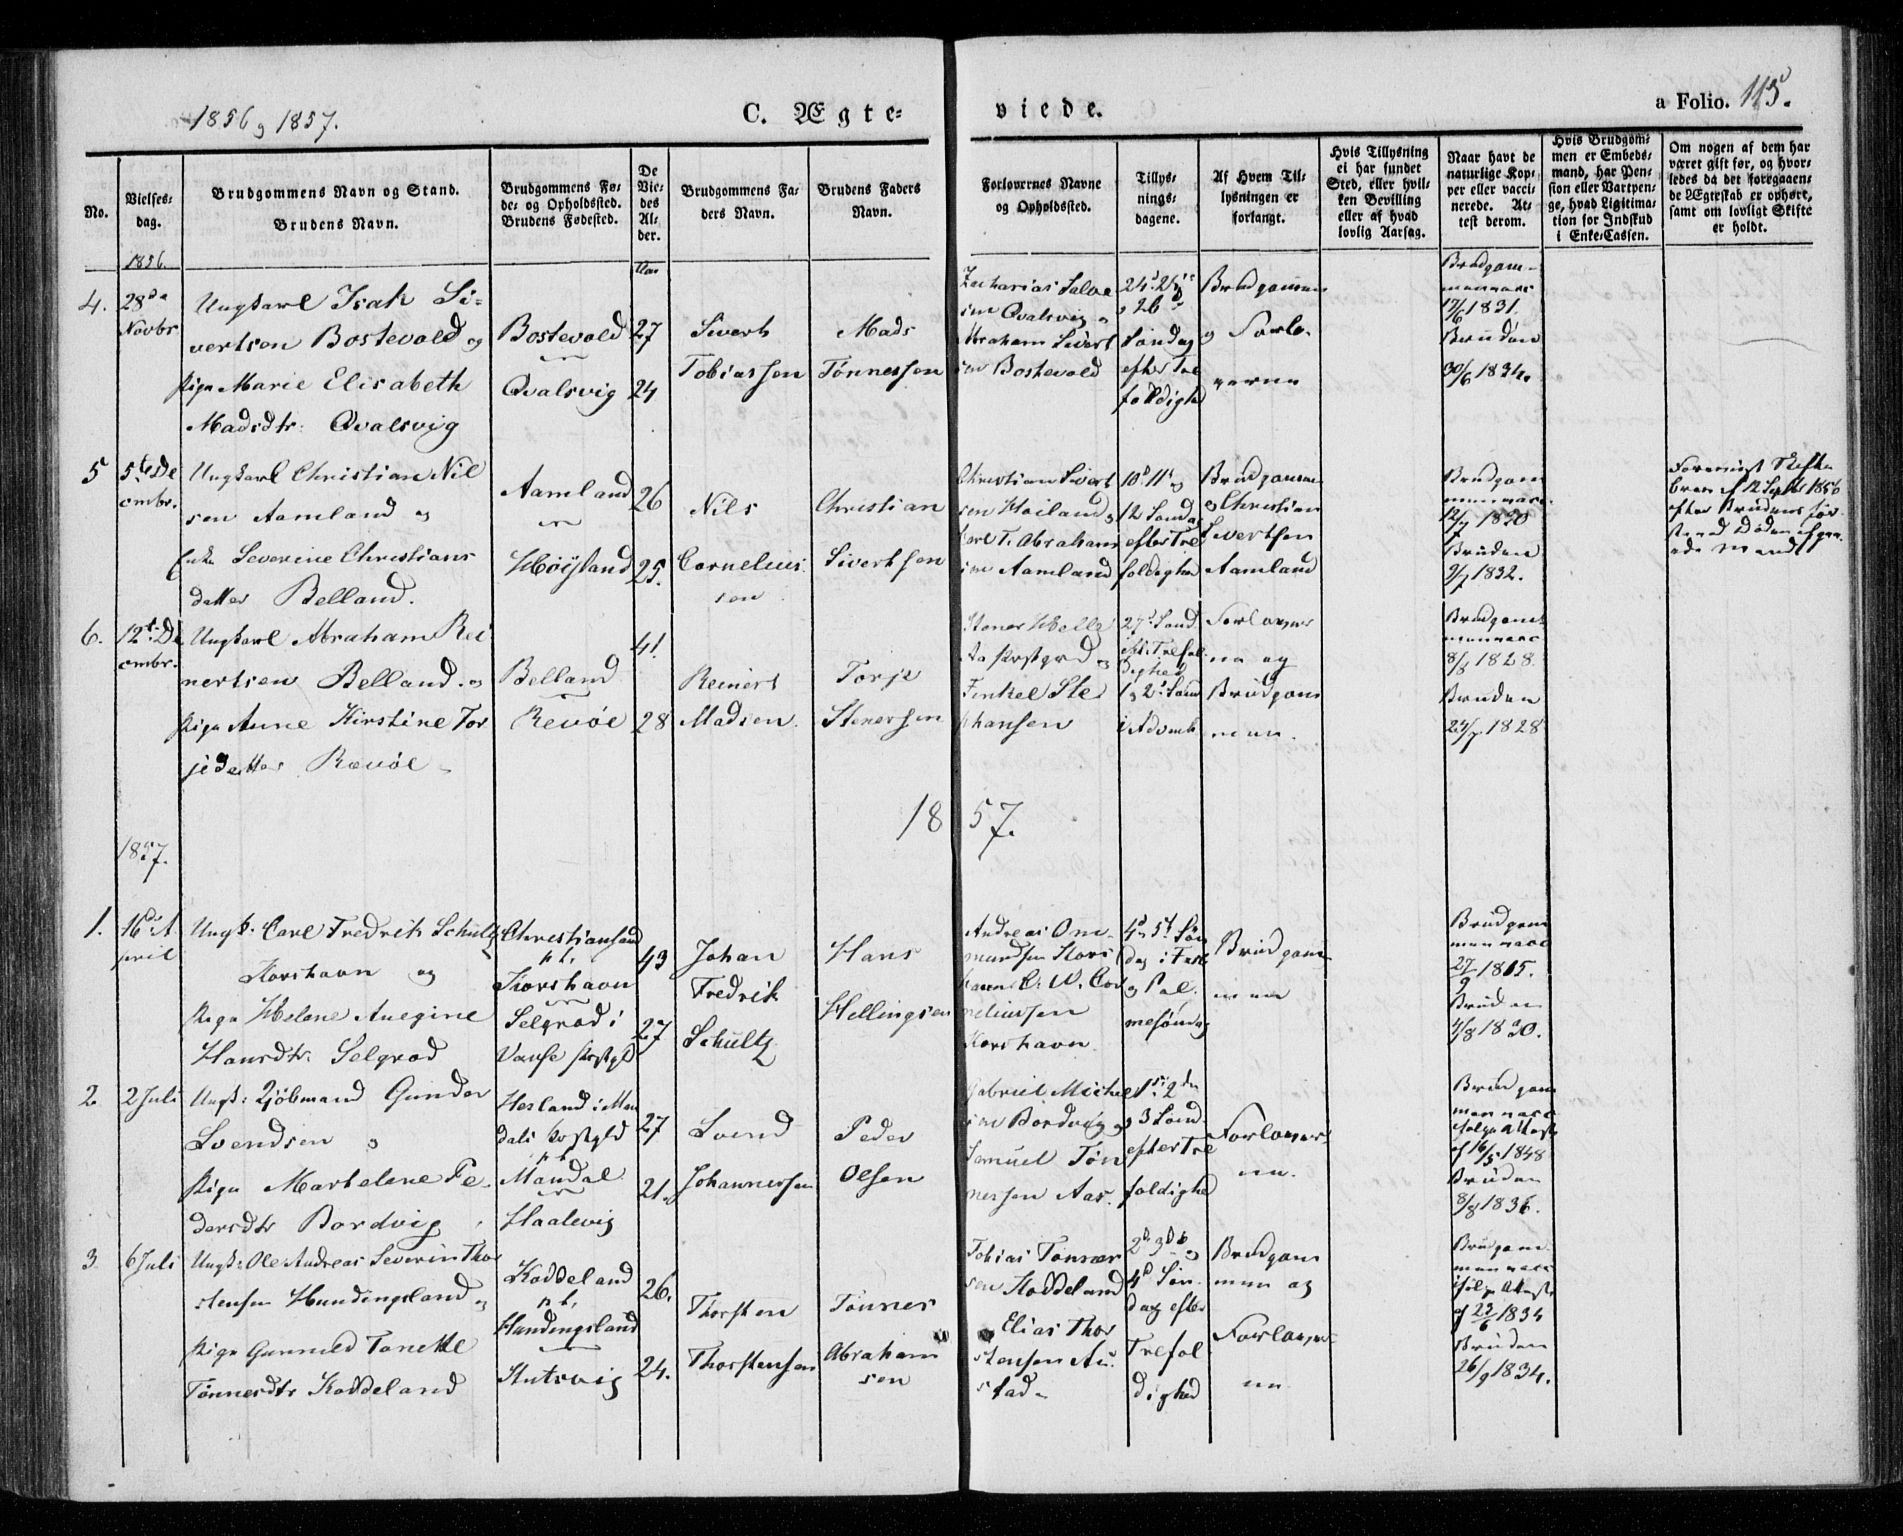 1856 og 1857.
C. Ægte-
viede.
a Folio. 113.
No.
Vielses-
dag.
Brudgommens Navn og Stand.
Brudens Navn.
Brudgommens Fø-
de- og Opholdssted.
Brudens Fødested.
De
Vie-
des
Al-
der.
Brudgommens Fa-
ders Navn.
Brudens Faders
Navn.
Forlovernes Navne
og Opholdssted.
Tillys-
nings-
dagene.
Af Hvem Til-
lysningen er
forlangt.
Hvis Tillysning
ei har fundet
Sted, eller hvil-
ken Bevilling
eller af hvad
lovlig Aarsag.
Naar havt de
naturlige Kop-
per eller vacci-
nerede. At-
test derom.
Hvis Brudgom-
men er Embeds-
mand, har Pen-
sion eller Vartpen-
ge, hvad Ligitima-
tion for Indskud
i Enke-Cassen.
Om nogen af dem har
været gift før, og hvor-
ledes da det foregaaen-
de Ægteskab er ophørt,
samt om lovligt Skifte
er holdt.
1856.
Aar
4.
28de
Novbr
Ungkarl Isak Si-
vertsen Bostevold og
Pige Marie Elisabeth
Madsdtr: Qvalsvig
Bostevold
Qvalsvig
27
24
Sivert
Tobiassen
Mads
Tønnessen
Zacharias
Qvalsvig
Abraham Sivert
sen Bostevold
Søndag
efter Tre
foldighed
Brudgommen
og Forlo-
verne
Brudgom-
mennaar
17/6 1831.
Bruden
30/6 1834.
5
5te De
cmbr.
Ungkarl Christian Nil
sen Aamland og
Enke Severine Christians
datter Belland.
Aamland
Høyland
26
25.
Nils
Cornelius
sen
Christian
Sivertsen
Christian Sivert
sen Høiland og
Carl T. Abraham
sen Aamland
10d 11t og
12 Søndag
efter Tre
foldighed
Brudgommen
og Christian
Sivertsen
Aamland
Brudgom
12/7 1830
Bruden
9/7 1832.
6.
12t De
cmbr.
Ungkarl Abraham Rei
nertsen Belland. og
Pige Anne Kirstine Tor
jedatter Rævøe
Belland
Revøe
41
28
Reinert
Madsen.
Torje
Stenersen
Stener Helle
Tenkel Ste
phansen
27d Sønd
eft: Trefol
dighed
1 og 2d Sønd
i Advent
Forlover
ne og
Brudgom
men.
Brudgom
8/8 1828.
Bruden
24/7 1828
1857.
1857.
1.
16de A
pril
Ungk: Carl Fredrik Schultz
Korshavn og
Pige Helene Anegine
Hansdtr: Selgrød
Christiansand
p.t.
Korshavn
Selgrød i
Vanse Prstgld
43
27
Johan
Fredrik
Schultz
Hans
Hellingsen
Andreas Om-
mundsen Kors
havn C. W. Cor
neliussen
Korshavn.
4d 5t Søn
dag i Fast
og Pal
mesøndag
Brudgom-
men
Brudgom
27/9 1815.
Bruden
4/8 1830.
2.
2 Juli
Ungk: Kjøbmand Gunder
Svendsen og
Pige Marthelene Pe-
dersdtr Bordvig
Hesland i Man
dals Prstgld
p.t.
Mandal
Haalevig
27
21.
Svend
Johannessen
Peder
Olsen
Gabriel Michel
sen Bordvig og
Samuel Tøn
nessen Aas.
1s 2den
og 3 Sønd
efter Tre
foldighed
Forlover
ne.
Brudgom
af 16/5 1848
Bruden
8/8 1836.
3
6 Juli
Ungk: Ole Andreas Severin Thor
stensen Hundingsland og
Pige Gunnild Tonette
Tønnesdtr Koddeland
Koddeland
p.t.
Hundingsland
Stutsvig
26.
24.
Thorsten
Thorstensen
Tønnes
Abraham
sen
Tobias Tønnes
sen Koddeland
Elias Thor
stensen Au
stad
2d 3d og
4d Søn
dag efter
Trefol
dighed
Brudgom
men og
Forlover-
ne
Brudgom
af 22/6 1834
Bruden
26/9 1834.